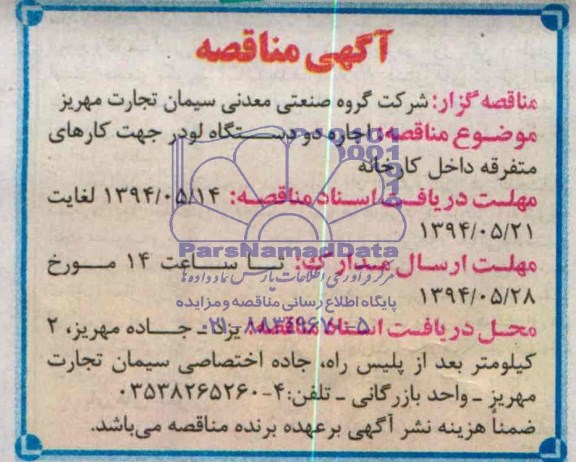 آگهی مناقصه
مناقصه گزار: شرکت گروه صنعتی معدنی سیمان تجارت مهریز
موضوع مناقصه: اجاره دو دستگاه لودر جهت کارهای
متفرقه داخل کارخانه
مهلت دریافت اسناد مناقصه: ۱۳۹۴/۰۵/۱۴ لغایت
۱۳۹۴/۰۵/۲۱
ParsNamadData
مهلت ارسال مدارک: تا ساعت ۱۴ مورخ
مرکز فرآوری اطلاعات پارس نماد داده ها
۱۳۹۴/۰۵/۲۸
پایگاه اطلاع رسانی مناقصه و مزایده
محل دریافت اسناد مناقصه: یزد ـ جاده مهریز، ۲
۰۲۱-۸۸۳۴۹۶۷۰-۵
کیلومتر بعد از پلیس راه، جاده اختصاصی سیمان تجارت
مهریز ـ واحد بازرگانی ـ تلفن: ۴-۰۳۵۳۸۲۶۵۲۶۰
ضمناً هزینه نشر آگهی برعهده برنده مناقصه می‌باشد.